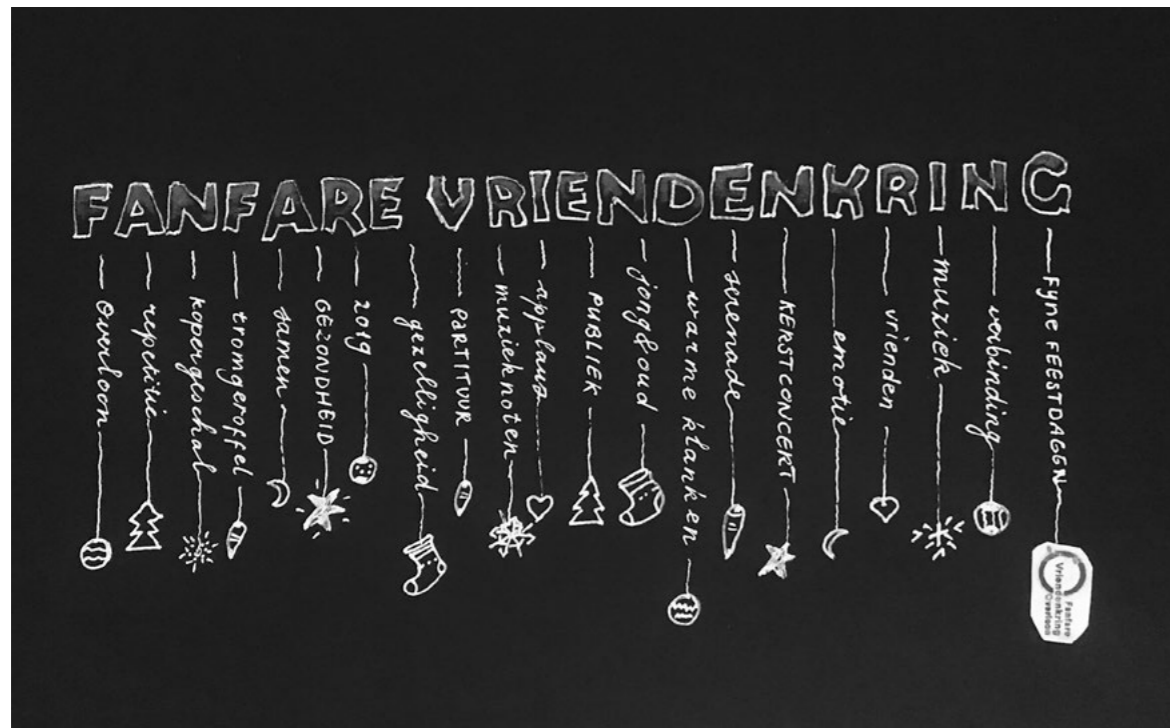 FANFARE VRIENDENKRING
Overloon
repetitie
kopergeschal
tromgeroffel
samen
GEZONDHEID
2019
gezelligheid
PARTITUUR
muzieknoten
applaus
PUBLIEK
jong&oud
warme klanken
serenade
KERSTCONCERT
emotie
vrienden
muziek
verbinding
FYNE FEESTDAGEN
Fanfare
Vriendenkring
Overloon